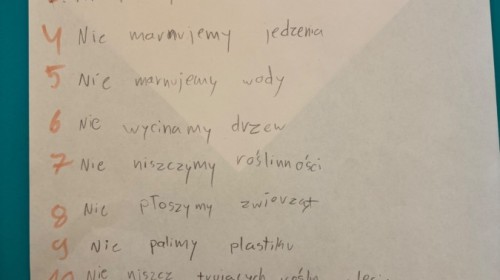 4 Nie marnujemy jedzenia
5 Nie marnujemy wody
6 Nie wycinamy drzew
7 Nie niszczymy roślinności
8 Nie płoszymy zwierząt
9 Nie palimy plastiku
10 Nie niszcz trujących roślin